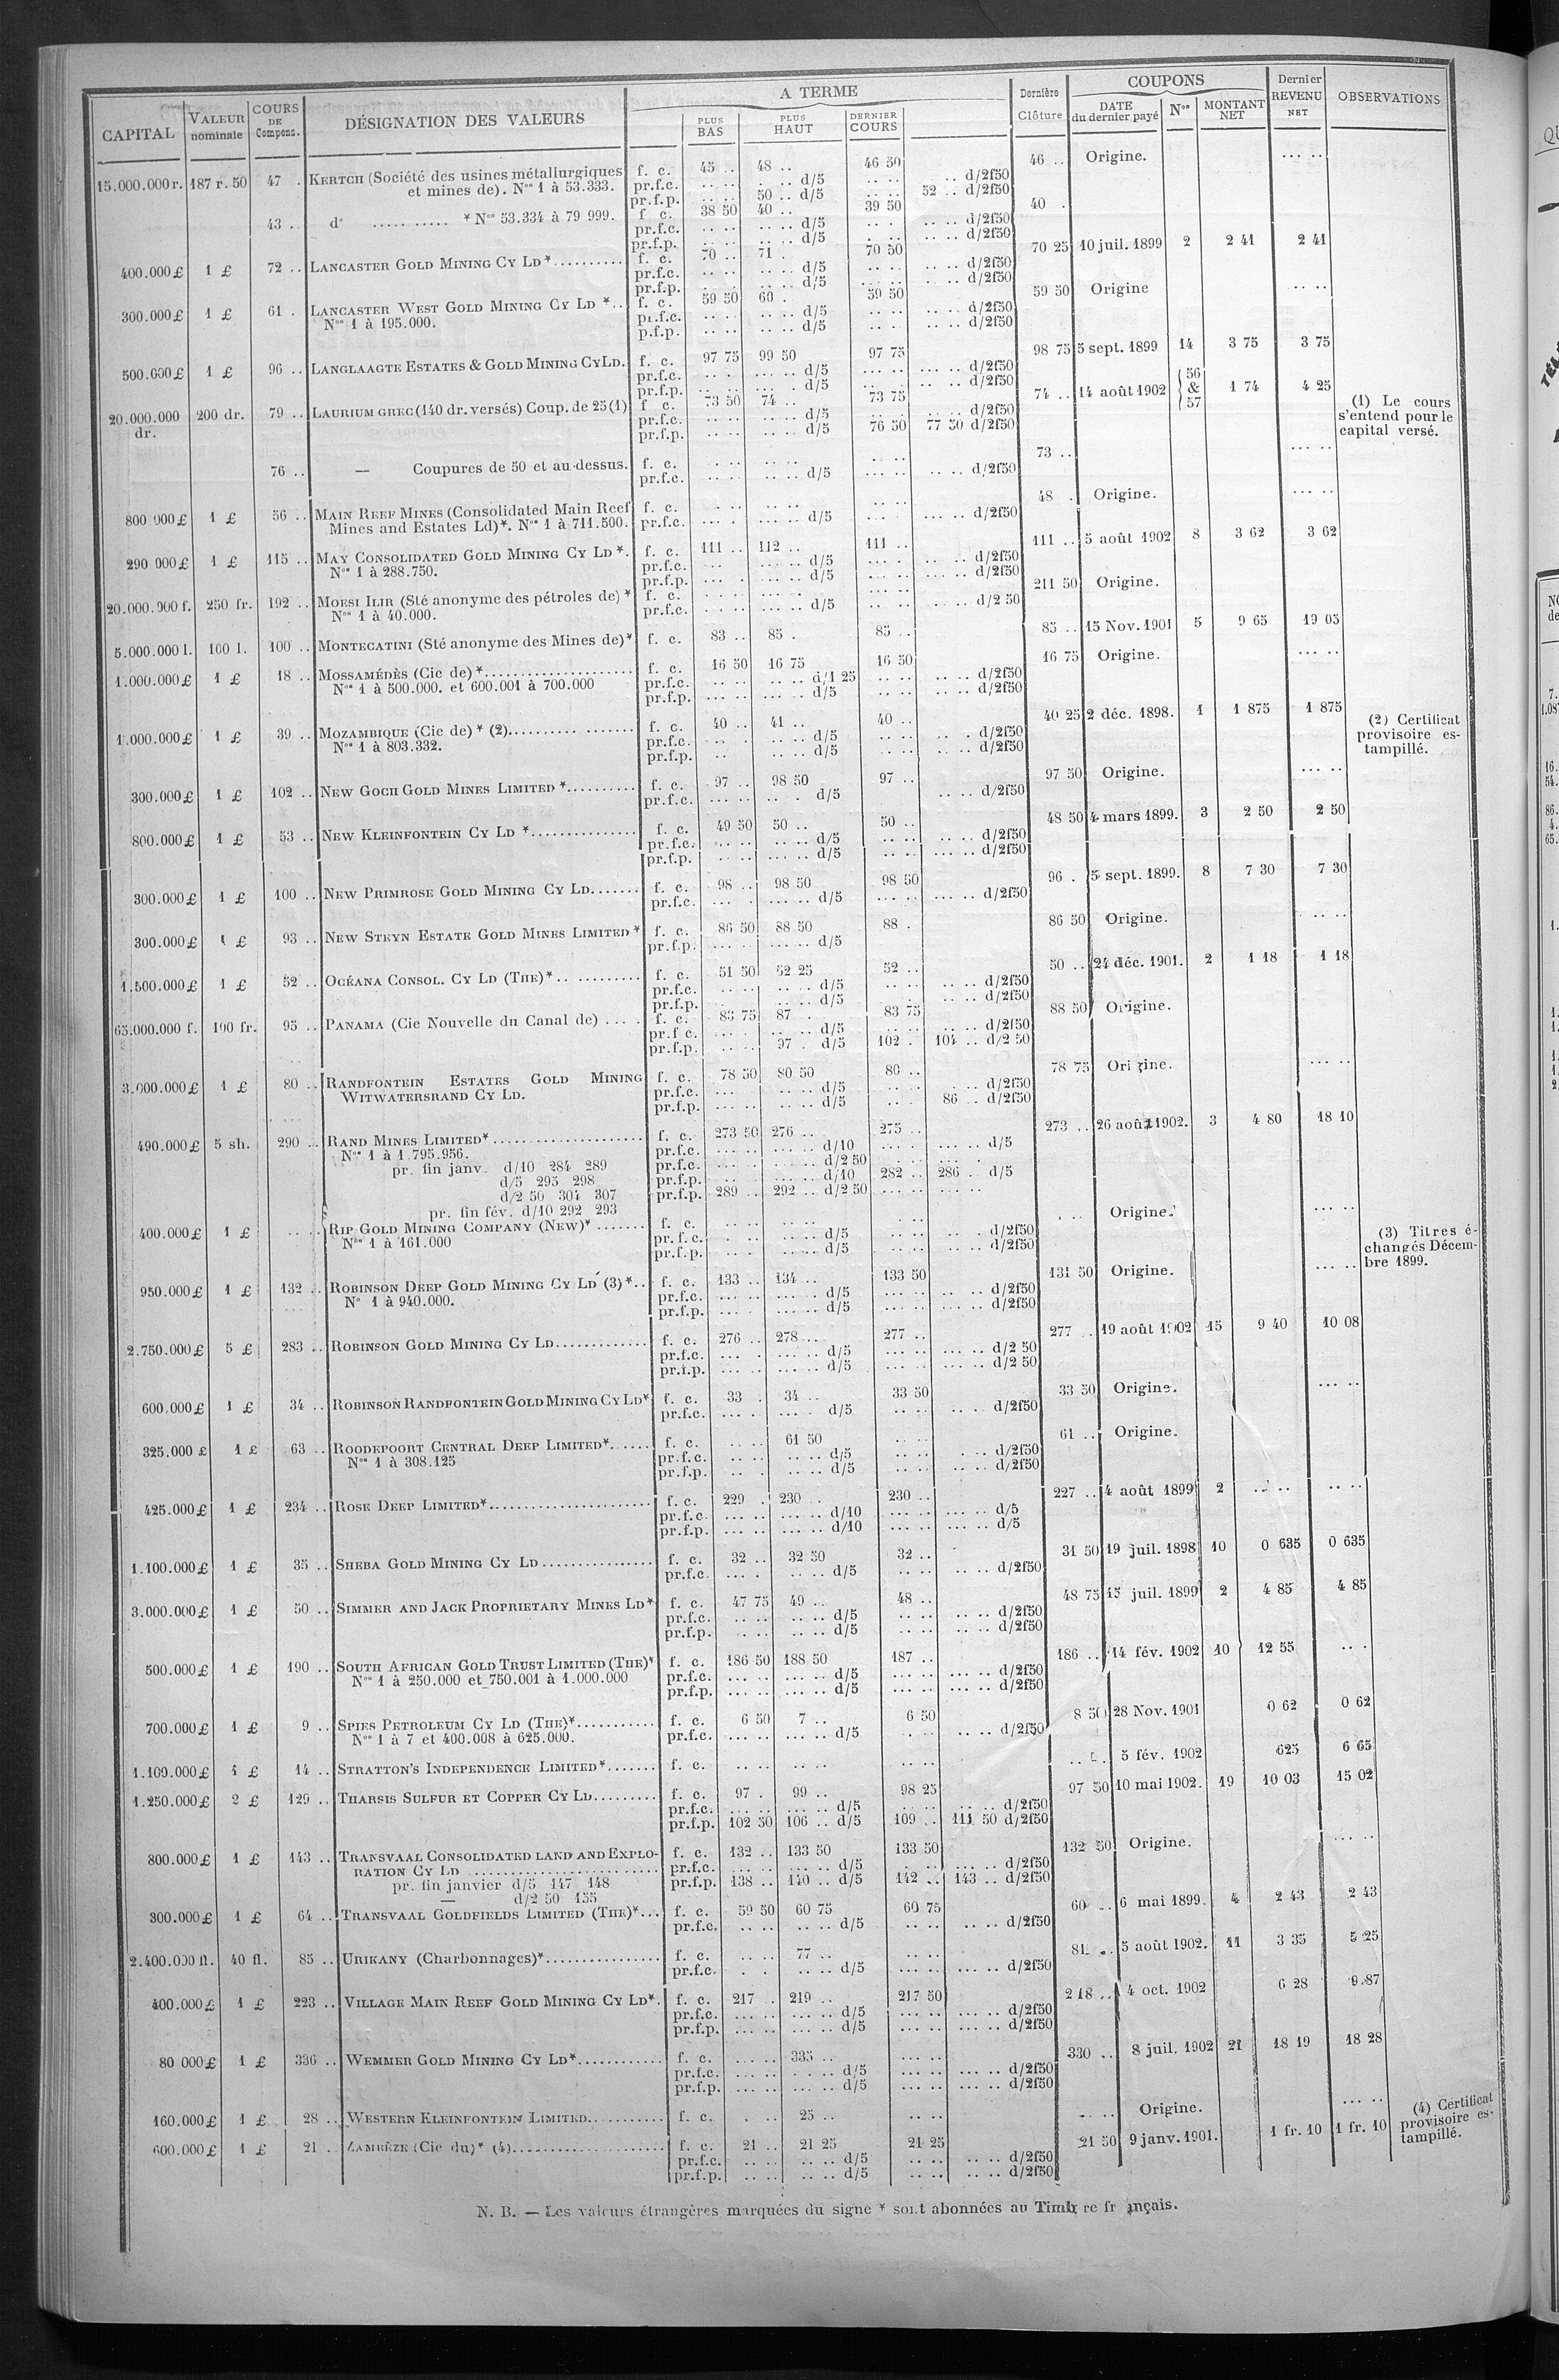 CAPITAL VALEUR nominale COURS DE Compens. DÉSIGNATION DES VALEURS A TERME PLUS BAS PLUS HAUT DERNIER COURS Dernière Clôture COUPONS DATE du dernier payé Nos MONTANT NET Dernier REVENU NET OBSERVATIONS
15.000.000 r. 187 r. 50 47 . KERTCH (Société des usines métallurgiques f. c. 45 .. 48 .. 46 50 46 .. Origine. ... ..
et mines de). Nos 1 à 53.333. pr.f.c. .. .. . .. d/5 .. .. .. d/2f50
pr.f.p. .. .. 50 .. d/5 .. .. 52 .. d/2f50
43 .. do ..... ..... * Nos 53.334 à 79 999. f c. 38 50 40 .. 39 50 40 .
pr.f.c. .. .. .. .. d/5 .. . .. .. d/2f50
pr.f.p. .. .. .. .. d/5 . .. .. .. d/2f50
400.000 £ 1 £ 72 .. LANCASTER GOLD MINING CY LD *.......... f. c. 70 .. 71 . 70 50 70 25 10 juil. 1899 2 2 41 2 41
pr.f.c. .. .. .. .. d/5 .. .. .. .. d/2f50
pr.f.p. . . .. .. d/5 .. .. .. .. d/2f50
300.000 £ 1 £ 61 . LANCASTER WEST GOLD MINING CY LD *.. f. c. 59 50 60 . 59 50 59 50 Origine ... ..
Nos 1 à 195.000. pr.f.c. .. .. .. .. d/5 .. . .. .. d/2f50
p.f.p. .. .. .. .. d/5 .. . .. .. d/2f50
500.000 £ 1 £ 96 .. LANGLAAGTE ESTATES & GOLD MINING CY LD. f. c. 97 75 99 50 97 75 98 75 5 sept. 1899 14 3 75 3 75
pr.f.c. .. . ... .. d/5 ... .. ... .. d/2f50
pr.f.p. .. .. ... . d/5 ... .. .. .. d/2f50
20.000.000 dr. 200 dr. 79 .. LAURIUM GREC (140 dr. versés) Coup. de 25 (1) f c. 73 50 74 .. 73 75 74 .. 14 août 1902 56 & 57 1 74 4 25 (1) Le cours s'entend pour le capital versé.
pr.f.c. .. .. .. .. d/5 .. . .. .. d/2f50
pr.f.p. .. .. .. .. d/5 76 50 77 50 d/2f50
76 .. — Coupures de 50 et au-dessus. f. c. . .. .. .. .. .. 73 .. ... ..
pr.f.c. .. .. . .. d/5 ... .. .. .. d/2f50
800 000 £ 1 £ 56 .. MAIN REEF MINES (Consolidated Main Reef f. c. . .. .. .. .. .. 48 . Origine. ... ..
Mines and Estates Ld)*. Nos 1 à 711.500. pr.f.c. ... . ... .. d/5 ... . ... .. d/2f50
290 000 £ 1 £ 115 .. MAY CONSOLIDATED GOLD MINING CY LD *. f. c. 111 .. 112 .. 111 .. 111 .. 5 août 1902 8 3 62 3 62
Nos 1 à 288.750. pr.f.c. ... ... .. d/5 ... . .. .. d/2f50
pr.f.p. ... . ... .. d/5 ... .. ... .. d/2f50
20.000.000 f. 250 fr. 192 .. MOESI ILIR (Sté anonyme des pétroles de) * f. c. . .. .. .. ... . 211 50 Origine.
Nos 1 à 40.000. pr.f.c. .. .. ... .. d/5 .. .. .. .. d/2 50
5.000.000 l. 100 l. 100 .. MONTECATINI (Sté anonyme des Mines de)* f. c. 83 .. 85 . 85 .. 85 .. 15 Nov. 1901 5 9 65 19 05
1.000.000 £ 1 £ 18 .. MOSSAMÉDÈS (Cie de) *..................... f. c. 16 50 16 75 16 50 16 75 Origine. ... ..
Nos 1 à 500.000. et 600.001 à 700.000 pr.f.c. .. .. .. .. d/1 25 .. .. .. .. d/2f50
pr.f.p. ... .. ... .. d/5 .. .. .. .. d/2f50
1.000.000 £ 1 £ 39 .. MOZAMBIQUE (Cie de) * (2).......... ....... f. c. 40 .. 41 .. 40 .. 40 25 2 déc. 1898. 1 1 875 1 875 (2) Certificat provisoire estampillé.
Nos 1 à 803.332. pr.f.c. .. . .. .. d/5 .. .. .. . d/2f50
pr.f.p. .. .. .. d/5 .. .. .. .. d/2f50
300.000 £ 1 £ 102 .. NEW GOCH GOLD MINES LIMITED *.......... f. c. 97 .. 98 50 97 .. 97 50 Origine. ... ..
pr.f.c. ... .. .. . d/5 .. .. d/2f50
800.000 £ 1 £ 53 .. NEW KLEINFONTEIN CY LD *............... f. c. 49 50 50 .. 50 .. 48 50 4 mars 1899. 3 2 50 2 50
pr.f.c. .. .. .. .. d/5 .. .. .. .. d/2f50
pr.f.p. .. .. ... .. d/5 .. .. ... .. d/2f50
300.000 £ 1 £ 100 .. NEW PRIMROSE GOLD MINING CY LD....... f. c. 98 .. 98 50 98 50 96 . 5 sept. 1899. 8 7 30 7 30
pr.f.c. ... . ... .. d/5 ... .. ... .. d/2f50
300.000 £ 1 £ 93 .. NEW STEYN ESTATE GOLD MINES LIMITED * f. c. 86 50 88 50 88 . 86 50 Origine. ... ..
pr.f.p. ... .. ... .. d/5
1.500.000 £ 1 £ 52 .. OCÉANA CONSOL. CY LD (THE)*.. .......... f. c. 51 50 52 25 52 .. 50 .. 24 déc. 1901. 2 1 18 1 18
pr.f.c. .. .. .. .. d/5 .. .. .. .. d/2f50
pr.f.p. .. . .. .. d/5 .. .. d/2f50
65.000.000 f. 100 fr. 95 .. PANAMA (Cie Nouvelle du Canal de) .... . f. c. 83 75 87 . 83 75 88 50 Origine.
pr.f c. ... . .. .. d/5 .. .. .. .. d/2f50
pr.f.p. .. .. 97 . d/5 102 . 104 .. d/2 50
3.000.000 £ 1 £ 80 .. RANDFONTEIN ESTATES GOLD MINING f. c. 78 50 80 50 80 .. 78 75 Origine. ... ..
WITWATERSRAND CY LD. pr.f.c. ... ... .. d/5 .. .. . .. d/2f50
pr.f.p. ... .. .. .. d/5 .. . 86 .. d/2f50
490.000 £ 5 sh. 290 .. RAND MINES LIMITED*..................... f. c. 273 50 276 .. 275 .. 273 .. 26 août 1902. 3 4 80 18 10
Nos 1 à 1.795.956. pr.f.c. ... .. ... .. d/10 ... . ... .. d/5
pr. fin janv. d/10 284 289 pr.f.c. ... .. ... .. d/2 50
d/5 295 298 pr.f.p. ... .. ... .. d/10 282 .. 286 . d/5
d/2 50 304 307 pr.f.p. 289 .. 292 .. d/2 50 ... .. ... ..
pr. fin fév. d/10 292 293
400.000 £ 1 £ .. .. RIP GOLD MINING COMPANY (NEW)* ....... f. c. .. .. .. .. .. .. . .. Origine. ... ..
Nos 1 à 161.000 pr.f.c. .. .. .. .. d/5 .. .. .. .. d/2f50 (3) Titres échangés Décembre 1899.
pr.f.p. ... .. ... .. d/5 .. .. .. .. d/2f50
950.000 £ 1 £ 132 .. ROBINSON DEEP GOLD MINING CY LD (3) *.. f. c. 133 .. 134 .. 133 50 131 50 Origine. ... ..
No 1 à 940.000. pr.f.c. ... .. ... .. d/5 ... .. .. .. d/2f50
pr.f.p. ... ... .. d/5 ... .. ... .. d/2f50
2.750.000 £ 5 £ 283 .. ROBINSON GOLD MINING CY LD............. f. c. 276 .. 278 .. 277 .. 277 .. 19 août 1902 15 9 40 10 08
pr.f.c. ... . ... .. d/5 ... .. ... .. d/2 50
pr.f.p. ... .. ... .. d/5 ... .. ... .. d/2 50
600.000 £ 1 £ 34 .. ROBINSON RANDFONTEIN GOLD MINING CY LD* f. c. 33 . 34 .. 33 50 33 50 Origine. ... ..
pr.f.c. ... . ... . d/5 .. .. .. . d/2f50
325.000 £ 1 £ 63 .. ROODEPOORT CENTRAL DEEP LIMITED*...... f. c. .. .. 61 50 .. .. 61 .. Origine.
Nos 1 à 308.125 pr.f.c. .. .. .. .. d/5 .. .. . .. d/2f50
pr.f.p. .. . .. .. d/5 .. .. .. .. d/2f50
425.000 £ 1 £ 234 .. ROSE DEEP LIMITED*....................... f. c. 229 . 230 .. 230 .. 227 .. 4 août 1899 2 .. .. .. ..
pr.f.c. ... .. ... .. d/10 ... .. ... .. d/5
pr.f.p. ... .. ... .. d/10 ... .. ... .. d/5
1.100.000 £ 1 £ 35 .. SHEBA GOLD MINING CY LD ................ f. c. 32 .. 32 50 32 .. 31 50 19 juil. 1898 10 0 635 0 635
pr.f.c. ... . .. .. d/5 .. .. .. .. d/2f50
3.000.000 £ 1 £ 50 .. SIMMER AND JACK PROPRIETARY MINES LD* f. c. 47 75 49 .. 48 .. 48 75 15 juil. 1899 2 4 85 4 85
pr.f.c. .. .. .. .. d/5 .. .. .. .. d/2f50
pr.f.p. .. .. .. .. d/5 .. .. .. .. d/2f50
500.000 £ 1 £ 190 .. SOUTH AFRICAN GOLD TRUST LIMITED (THE)* f. c. 186 50 188 50 187 .. 186 .. 14 fév. 1902 10 12 55 .. .
Nos 1 à 250.000 et 750.001 à 1.000.000 pr.f.c. ... .. ... .. d/5 ... .. ... .. d/2f50
pr.f.p. ... .. ... .. d/5 ... .. ... .. d/2f50
700.000 £ 1 £ 9 .. SPIES PETROLEUM CY LD (THE)*........... f. c. 6 50 7 .. 6 50 8 50 28 Nov. 1901 0 62 0 62
Nos 1 à 7 et 400.008 à 625.000. pr.f.c. ... .. ... .. d/5 .. . .. .. d/2f50
1.100.000 £ 1 £ 14 .. STRATTON'S INDEPENDENCE LIMITED*....... f. c. .. .. .. .. .. .. .. . 5 fév. 1902 625 6 65
1.250.000 £ 2 £ 129 .. THARSIS SULFUR ET COPPER CY LD......... f. c. 97 . 99 .. 98 25 97 50 10 mai 1902. 19 10 03 15 02
pr.f.c. ... .. ... .. d/5 .. .. .. .. d/2f50
pr.f.p. 102 50 106 .. d/5 109 .. 111 50 d/2f50
800.000 £ 1 £ 143 .. TRANSVAAL CONSOLIDATED LAND AND EXPLO- f. c. 132 .. 133 50 133 50 132 50 Origine. ... ..
RATION CY LD ......................... pr.f.c. ... .. ... .. d/5 . .. ... .. d/2f50
pr. fin janvier d/5 147 148 pr.f.p. 138 .. 140 .. d/5 142 .. 143 .. d/2f50
— d/2 50 155
300.000 £ 1 £ 64 .. TRANSVAAL GOLDFIELDS LIMITED (THE)*... f. c. 59 50 60 75 60 75 60 .. 6 mai 1899. 4 2 43 2 43
pr.f.c. .. .. .. .. d/5 .. .. .. .. d/2f50
2.400.000 fl. 40 fl. 85 .. URIKANY (Charbonnages)*................ f. c. .. .. 77 .. .. .. 81 .. 5 août 1902. 11 3 35 5 25
pr.f.c. . . .. .. d/5 ... .. ... .. d/2f50
400.000 £ 1 £ 223 .. VILLAGE MAIN REEF GOLD MINING CY LD*. f. c. 217 . 219 .. 217 50 218 .. 4 oct. 1902 6 28 9.87
pr.f.c. ... .. ... .. d/5 ... .. ... .. d/2f50
pr.f.p. ... .. ... .. d/5 ... .. ... .. d/2f50
80 000 £ 1 £ 336 .. WEMMER GOLD MINING CY LD*............ f. c. ... .. 335 .. ... .. 330 .. 8 juil. 1902 21 18 19 18 28
pr.f.c. ... .. . .. d/5 ... .. ... .. d/2f50
pr.f.p. ... .. ... .. d/5 ... .. ... .. d/2f50
160.000 £ 1 £ 28 .. WESTERN KLEINFONTEIN LIMITED.......... f. c. . .. 25 .. .. .. .. .. Origine. ... .. (4) Certificat provisoire estampillé.
600.000 £ 1 £ 21 .. ZAMBÈZE (Cie du)* (4)..................... f. c. 21 .. 21 25 21 25 21 50 9 janv. 1901. 1 fr. 10 1 fr. 10
pr.f.c. .. .. .. .. d/5 .. .. .. .. d/2f50
pr.f.p. .. .. .. .. d/5 .. .. .. .. d/2f50
N. B. — Les valeurs étrangères marquées du signe * sont abonnées au Timbre français.